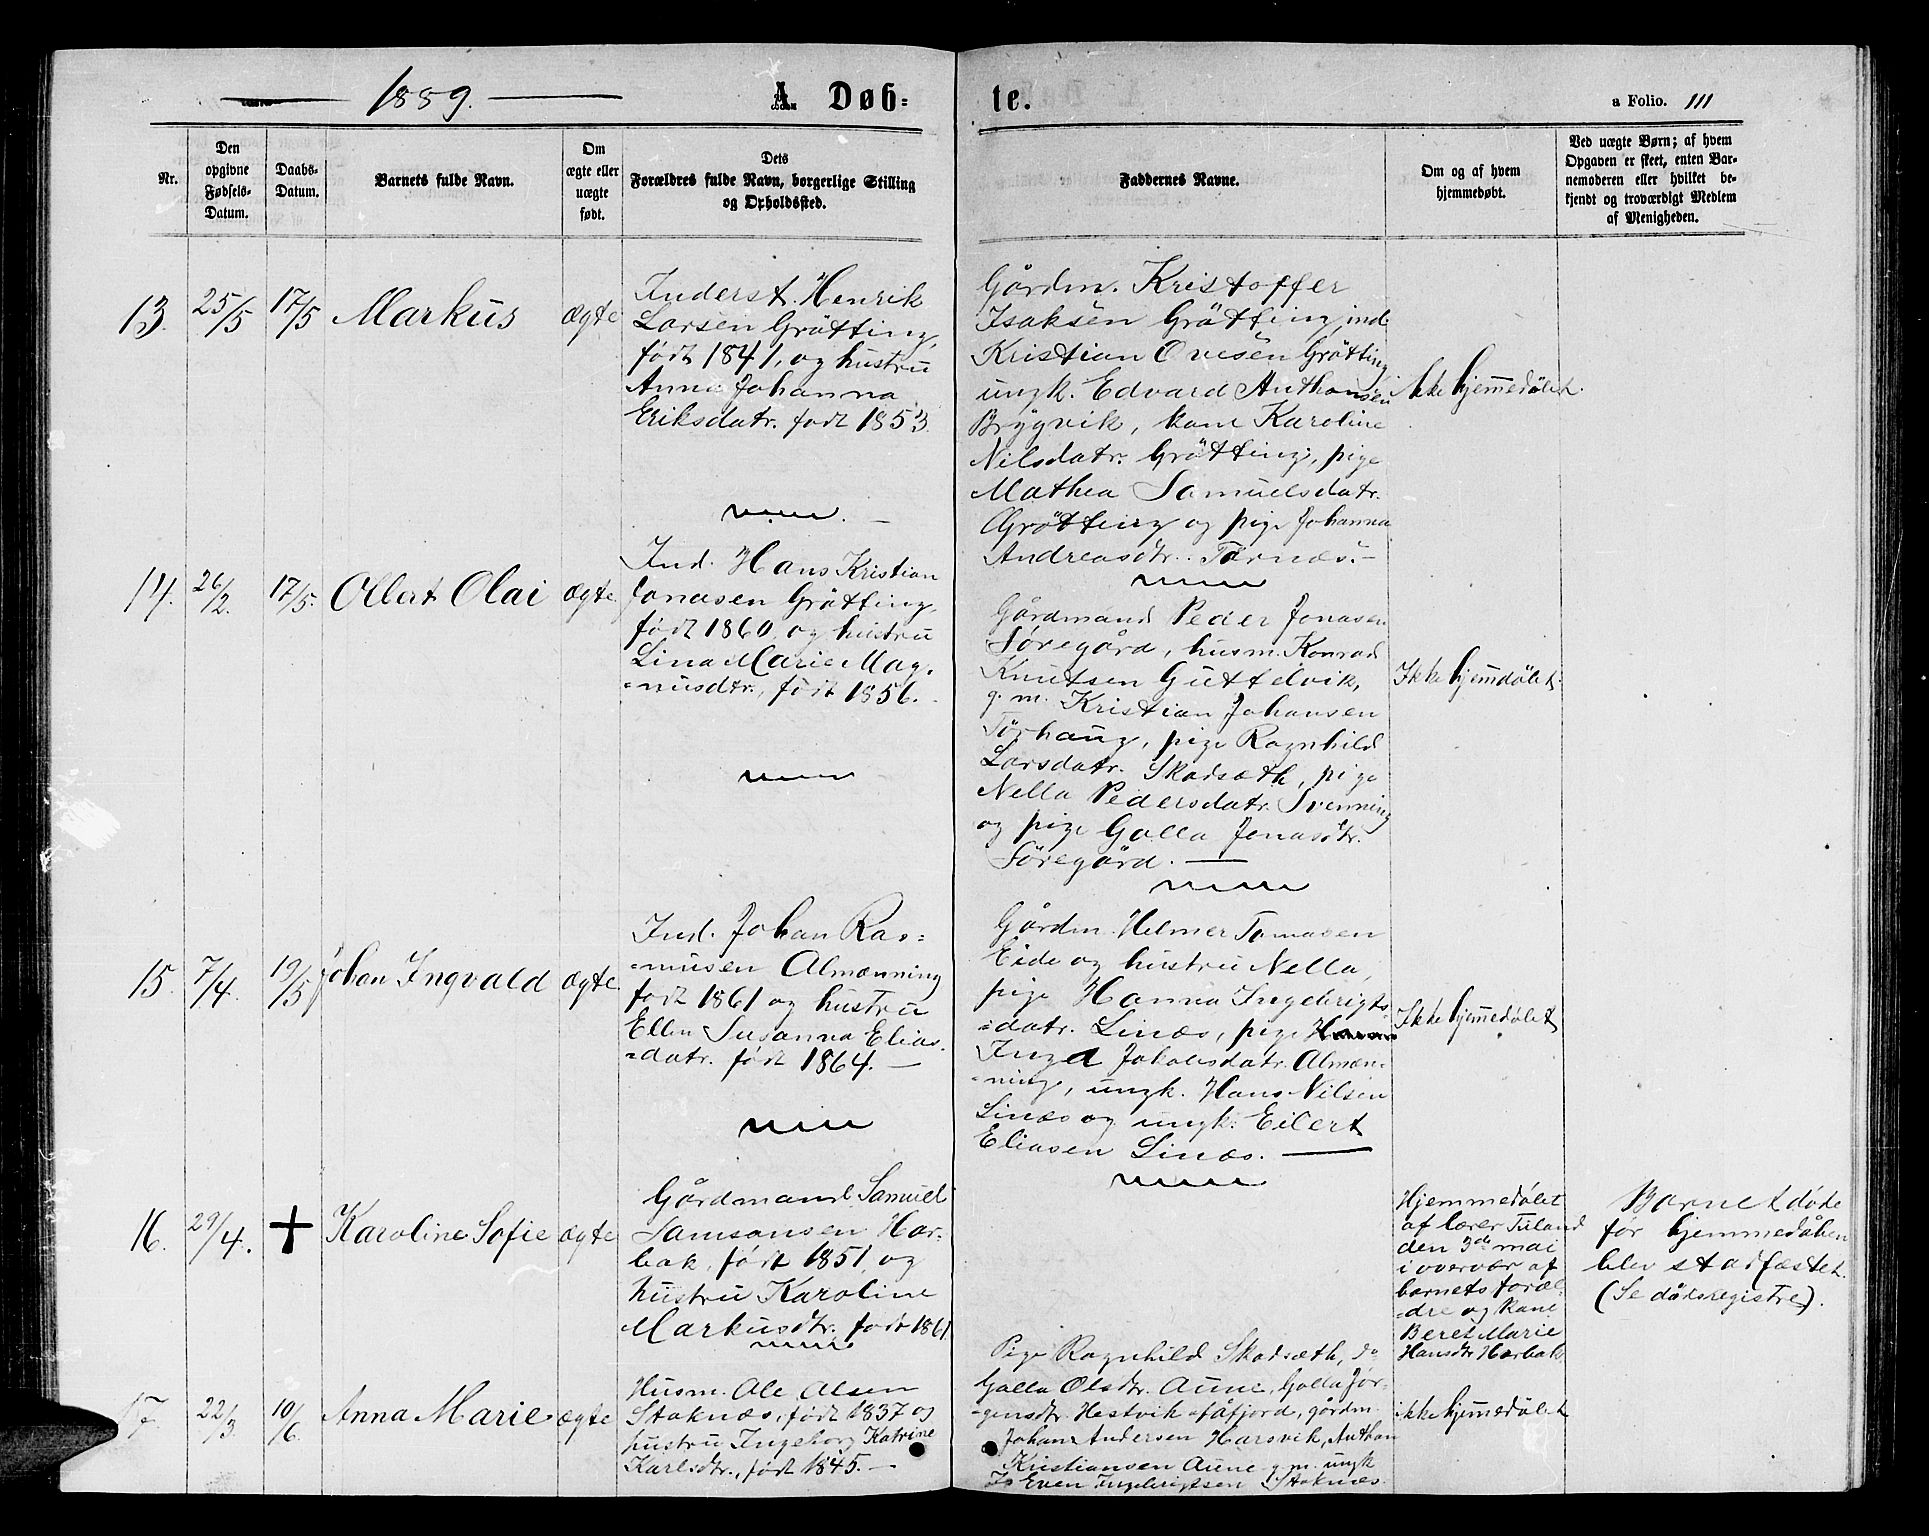 1889.
A. Døb-
te.
a Folio. 111
Nr.
Den opgivne Fødsels-Datum.
Daabs-Datum.
Barnets fulde Navn.
Om ægte eller uægte født.
Dets Forældres fulde Navn, borgerlige Stilling og Opholdssted.
Faddernes Navne.
Om og af hvem hjemmedøbt.
Ved uægte Børn; af hvem Opgaven er skeet, enten Barnemoderen eller hvilket bekjendt og troværdigt Medlem af Menigheden.
13. 25/5 17/5 Markus ægte
Inderst. Henrik
Larsen Grötting,
født 1841, og hustru
Anna Johanna
Eriksdatr. født 1853.
Gårdm. Kristoffer
Isaksen Grötting, ind.
Kristian Ovesen Grötting
ungk. Edvard Anthonsen
Brygvik, kone Karoline
Nilsdatr. Grötting, pige
Mathea Samuelsdatr.
Grötting og pige Johanna
Andreasdtr. Tørnæs.
Ikke hjemmedöbt.
14. 26/2. 17/5. Ollert Olai ægte.
Ind. Hans Kristian
Jonasen Grötting,
født 1860, og hustru
Lina Marie Mag-
=nusdtr., født 1856.
Gårdmand Peder Jonasen
Söregård, husm. Konrad
Knutsen Guttelvik,
g. m. Kristian Johansen
Törhaug, pige Ragnhild
Larsdatr. Skadsæth, pige
Nella Pedersdatr. Svenning
og pige Golla Jonasdtr.
Söregård.
Ikke hjemdöbt.
15. 7/4. 19/5 Johan Ingvald ægte.
Ind. Johan Ras=
=musen Almænning
født 1861 og hustru
Ellen Susanna Elias-
=datr. født 1864.
Gårdm. Helmer Tomasen
Eide og hustru Nella,
pige Hanna Ingebrigts-
=datr. Linæs, pige
Inga Jakobsdatr. Almæn-
=ning, ungk. Hans Nilsen
Linæs og ungk. Eilert
Eliasen Linæs.
Ikke hjemmedöbt
16. 29/4. ✝ Karoline Sofie ægte
Gårdmand Samuel
Samsonsen Har-
bak, født 1851, og
hustru Karoline
Markusdtr. født 1861
Hjemmedöbt
af lærer Tuland
den 3de mai
i overvær af
barnets foræl-
=dre og kone
Beret Marie
Hansdtr Harbak
Barnet döde
før hjemmedåben
blev stadfæstet.
(Se dödsregistre).
17. 22/3. 10/6. Anna Marie ægte
Husm. Ole Olsen
Stoknæs, født 1837 og
hustru Ingeborg Katrine
Karlsdtr., født 1845.
Pige Ragnhild Skadsæth, do
Golla Olsdtr. Aune, Golla Jör-
=gensdtr. Hestvik Åfjord, gårdm.
Johan Andersen Harsvik, Anthon
Kristiansen Aune g. m. ungk
Even Ingebrigtsen Stoknæs.
ikke hjemmedöbt